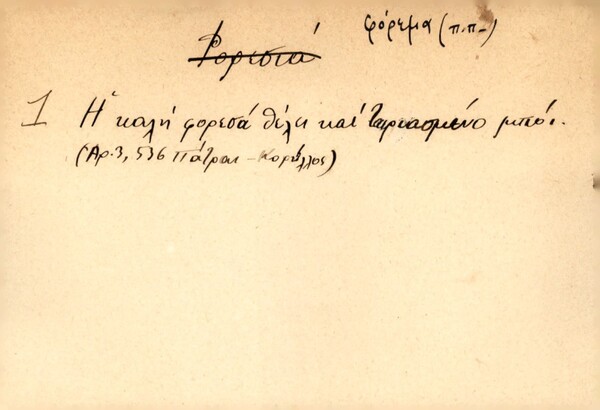 φόρεμα (π.π.)
Φορεσιά
1 Ἡ καλή φορεσά θέλει καί ταιριασμένο μπόι.
(Αρ. 3, 536 Πάτραι - Κορύλλος)